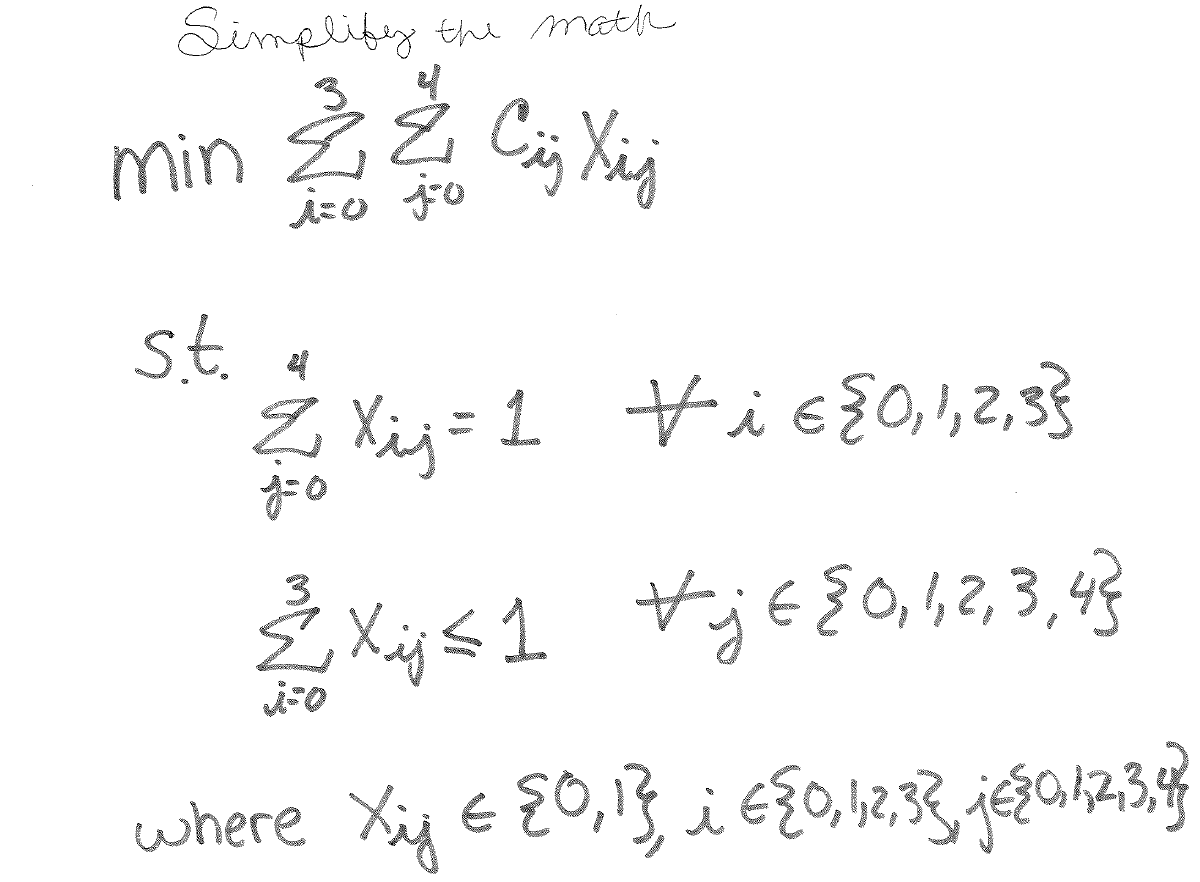 Simplify the math
min ∑_{i=0}^{3} ∑_{j=0}^{4} C_{ij} X_{ij}
s.t.
∑_{j=0}^{4} X_{ij} = 1 ∀ i ∈ {0,1,2,3}
∑_{i=0}^{3} X_{ij} ≤ 1 ∀ j ∈ {0,1,2,3,4}
where X_{ij} ∈ {0,1}, i ∈ {0,1,2,3}, j ∈ {0,1,2,3,4}